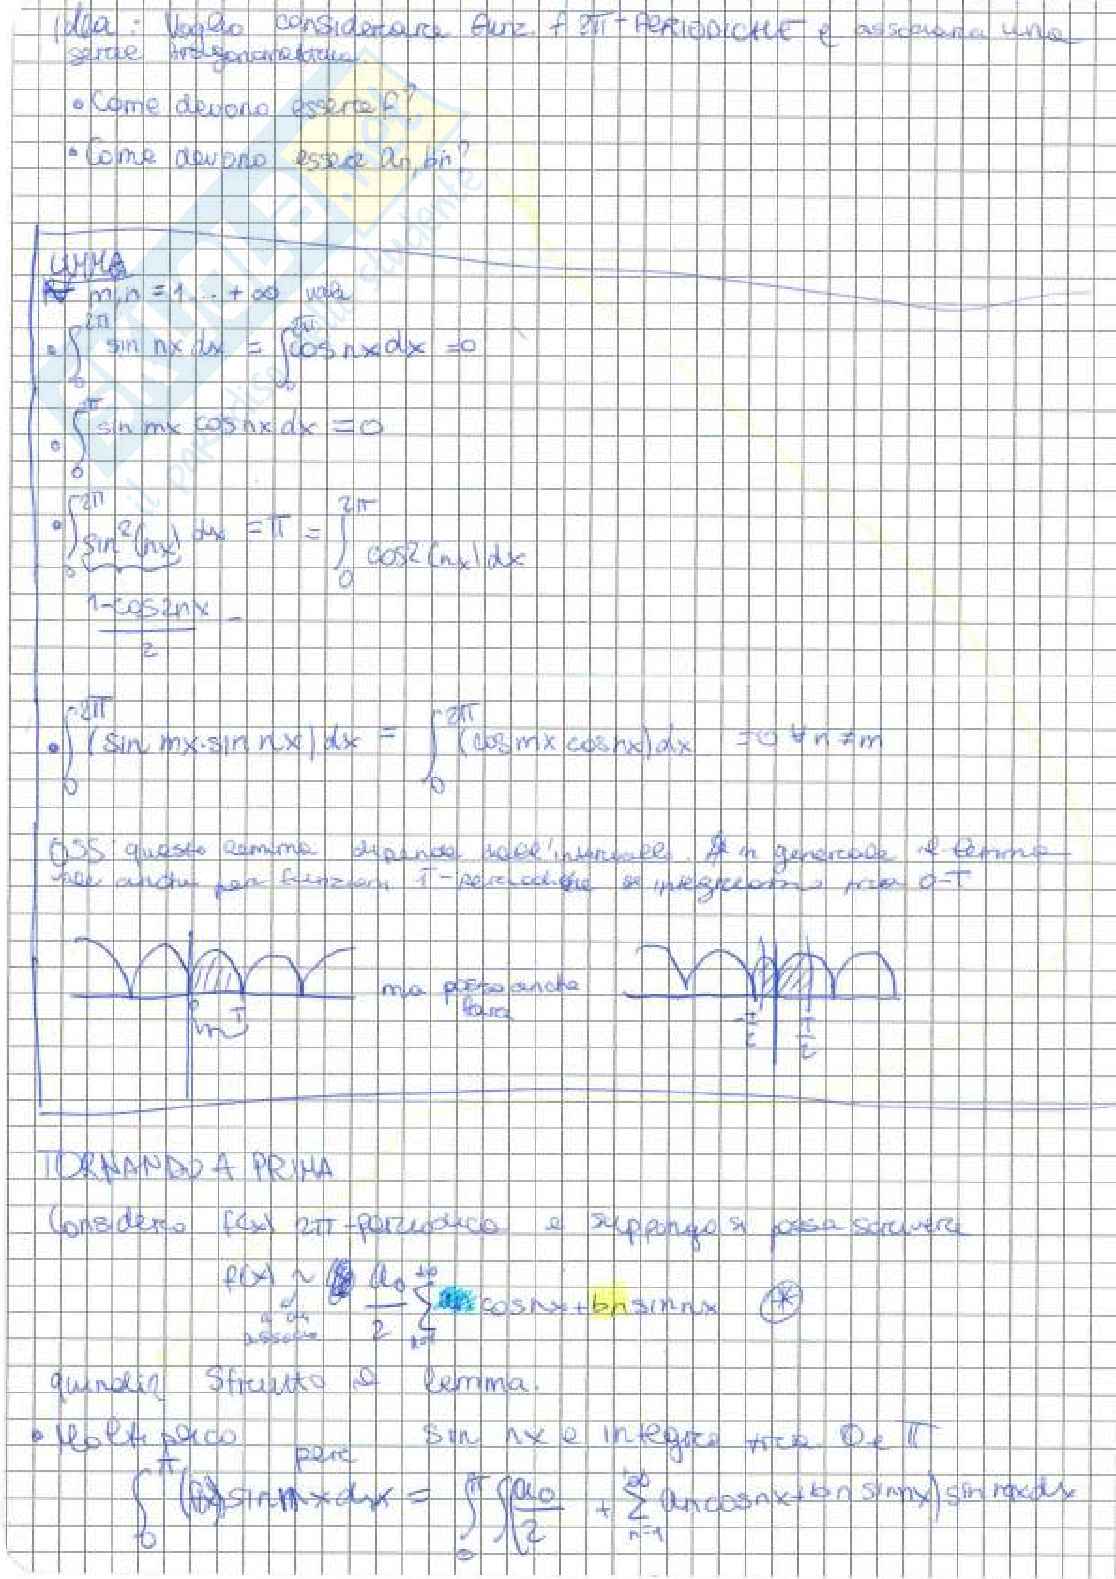 Idea: Voglio considerare funz. f 2π-PERIODICHE e associarla una
serie trigonometrica.
• Come devono essere f?
• Come devono essere an, bn?
LEMMA
∀ m,n = 1...+∞ vale
• ∫₀^2π sin nx dx = ∫₀^2π cos nx dx = 0
• ∫₀^2π sin mx cos nx dx = 0
• ∫₀^2π sin²(nx) dx = π = ∫₀^2π cos2(nx) dx
1-cos2nx
2
• ∫₀^2π (sin mx·sin nx) dx = ∫₀^2π (cos mx cos nx) dx = 0 ∀ n ≠ m
OSS questo lemma dipende dall'intervallo. In generale il lemma
vale anche per funzioni T-periodiche se integriamo tra 0-T
ma posso anche
fare
0 T
-T/2 T/2
TORNANDO A PRIMA
Considero f(x) 2π-periodica e suppongo si possa scrivere
f(x) ~ a₀/2 Σ n=1 +∞ cos nx + bn sin nx (*)
associo
quindi sfrutto il lemma.
• Moltiplico per sin nx e integro tra 0 e π
∫₀^π f(x) sin mx dx = ∫₀^π (a₀/2 + Σ n=1 ∞ an cos nx + bn sin nx) sin mx dx
SKUOLA.net
il paradiso dello studente